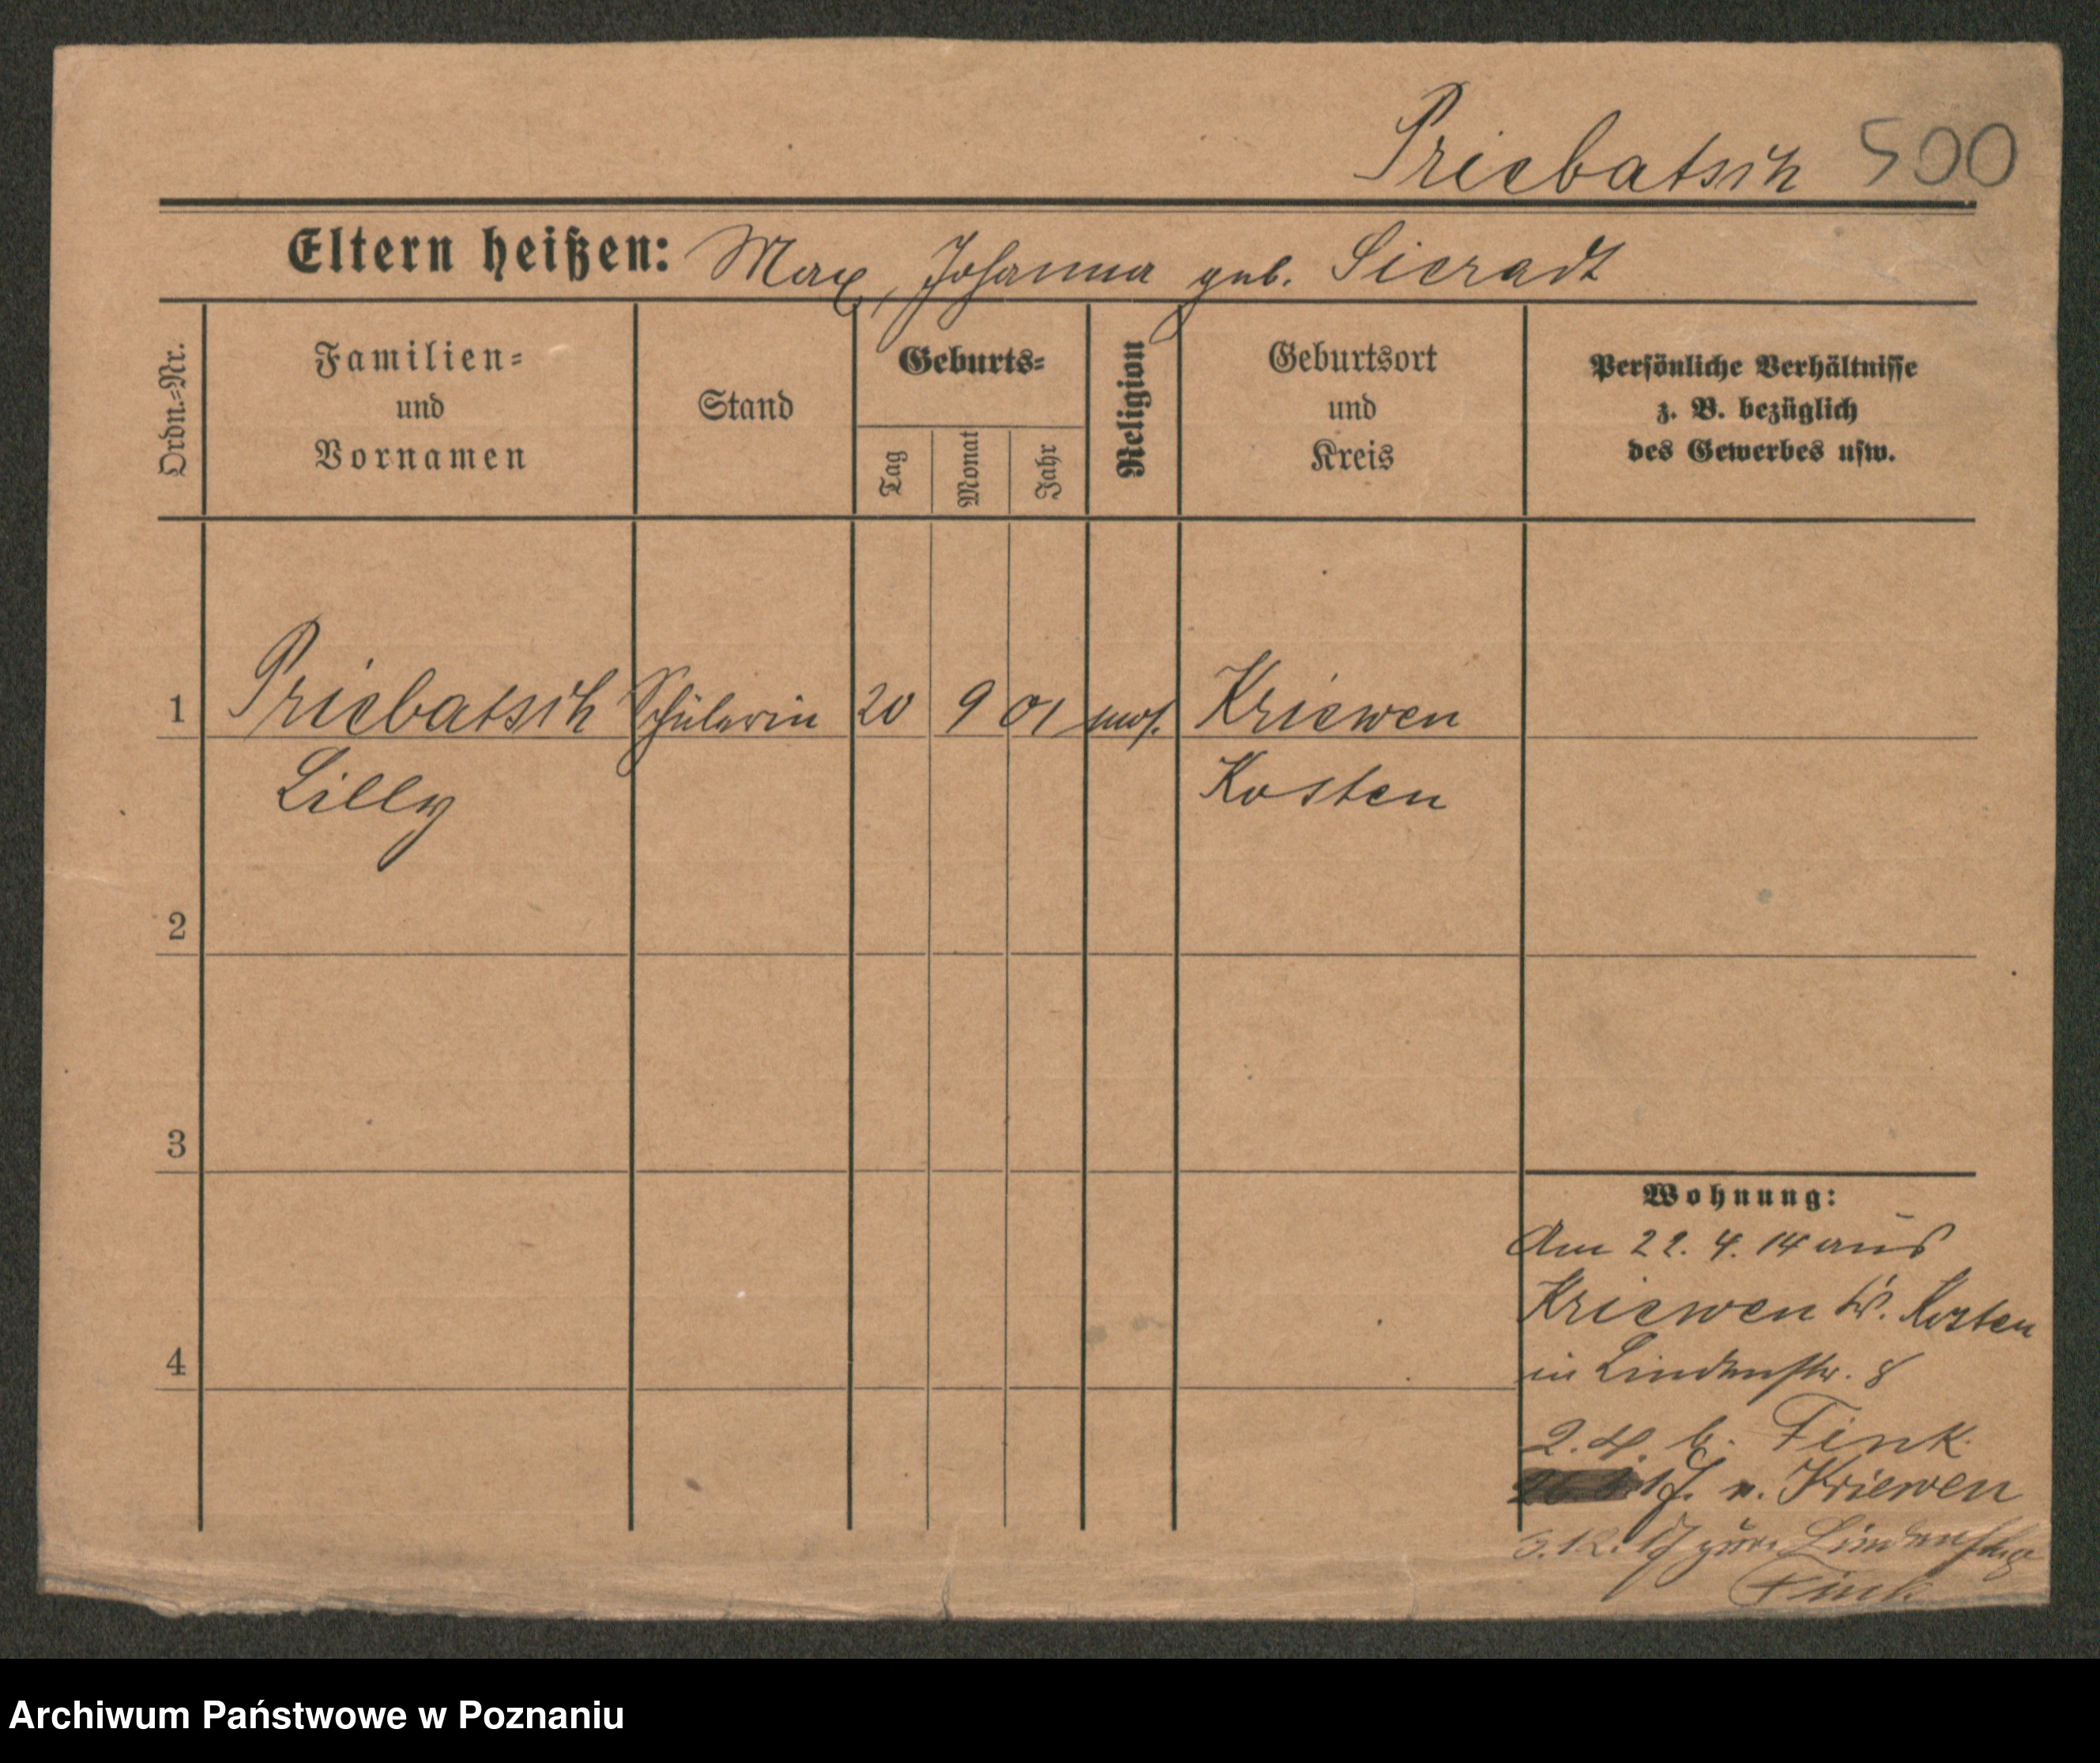 Priebatsch 500
Eltern heißen: Max, Johanna geb. Sieradt
Ordn.=Nr.
Familien=
und
Vornamen
Stand
Geburts=
Tag
Monat
Jahr
Religion
Geburtsort
und
Kreis
Persönliche Verhältnisse
z. B. bezüglich
des Gewerbes usw.
1 Priebatsch Schülerin 20 9 01 mos. Kriewen
Lilly Kosten
2
3
4
Wohnung:
Am 22. 4. 14 aus
Kriewen Kr. Kosten
in Lindenstr. 8
b. Fink
17. n. Kriewen
3.12.17 zur. Lindenstr.
Fink.
Archiwum Państwowe w Poznaniu